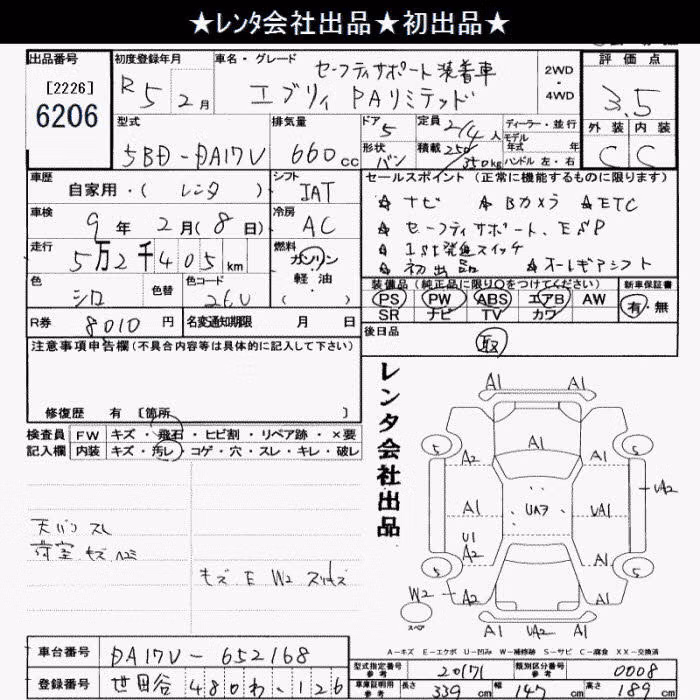 ★レンタ会社出品★初出品★
出品番号
[2226]
6206
初度登録年月
R5 2月
車名・グレード
セーフティサポート装着車
エブリィ PAリミテッド
2WD
・
4WD
評価点
3.5
型式
5BD-DA17V
排気量
660cc
ドア
5
定員
2/4人
ディーラー・並行
モデル
年式 年
形状
バン
積載
250/350kg
ハンドル 左・右
外装 内装
C C
車歴
自家用・( レンタ )
シフト
IAT
車検
9年 2月(8日)
冷房
AC
走行
5万2千405km
燃料
ガソリン
・
軽油
( )
色
シロ
色替
色コード
26U
R券
8010円
名変通知期限 月 日
セールスポイント(正常に機能するものに限ります)
☆ナビ ☆Bカメラ ☆ETC
☆セーフティサポート、ESP
☆1St発進スイッチ
☆初出品 ☆オールギアシフト
装備品(純正品に限り○をつけてください)
PS PW ABS エアB AW
SR ナビ TV カワ
新車保証書
有・無
後日品
取
注意事項申告欄(不具合内容等は具体的に記入して下さい)
修復歴 有 [箇所 ]
検査員
記入欄
FW キズ・飛石・ヒビ割・リペア跡・×要
内装 キズ・汚レ・コゲ・穴・スレ・キレ・破レ
天バン スレ
荷室 キズ ヘコミ
キズ E W2 スリキズ
レンタ会社出品
A1 A1
5 A1 5
A2 A1
UA2
A1 UA7 UA1
U1
A2 A1
5 5
W2 A2 A1 A2
スペア
A1 UA2 A1
A-キズ E-エクボ U-凹み W-補修跡 S-サビ C-腐食 XX-交換済
車台番号
DA17V-652168
登録番号
世田谷 480わ・126
型式指定番号
参考
20171
類別区分番号
参考
0008
車庫証明用
参考
長さ
339cm
幅
147cm
高さ
189cm